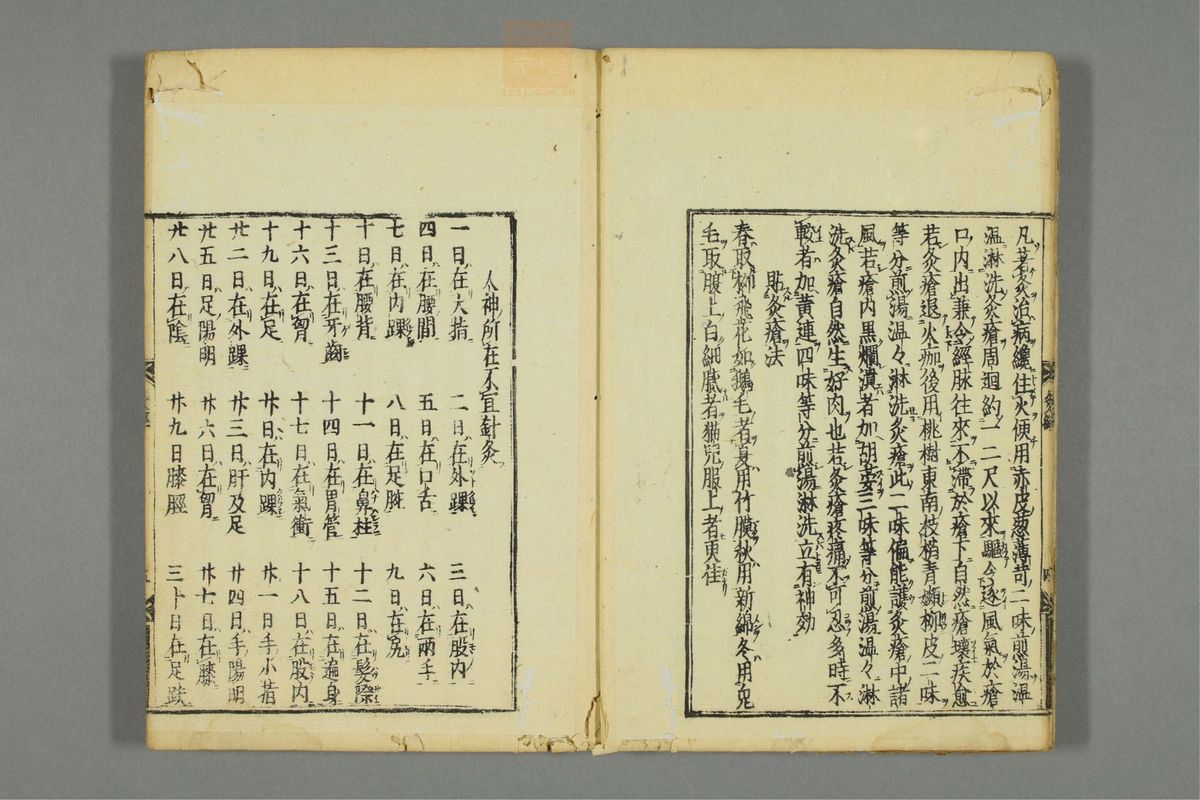 凡著灸治病纔住火便用赤皮葱薄苛二味煎湯温
温淋洗灸瘡周廻約一二尺以來驅令逐風氣於瘡
口内出兼令經脉往來不滯於瘡下自然瘡壞疾愈
若灸瘡退火痂後用桃樹東南枝梢青嫩柳皮二味
等分煎湯温々淋洗灸瘡此二味偏能護灸瘡中諸
風若瘡内黒爛潰者加胡荽三味等分煎湯温々淋
洗灸瘡自然生好肉也若灸瘡疼痛不可忍多時不
較者加黄連四味等分煎湯淋洗立有神効
貼灸瘡法
春取柳飛花如鵝毛者夏用竹膜秋用新綿冬用兔
毛取腹上白細膩者猫兒服上者更佳
人神所在不宜針灸
一日在大指 二日在外踝 三日在股内
四日在腰間 五日在口舌 六日在兩手
七日在内踝 八日在足腕 九日在尻
十日在腰背 十一日在鼻柱 十二日在髮際
十三日在牙齒 十四日在胃管 十五日在遍身
十六日在胷 十七日在氣衝 十八日在股内
十九日在足 廿日在内踝 廿一日手小指
廿二日在外踝 廿三日肝及足 廿四日手陽明
廿五日足陽明 廿六日在胷 廿七日在膝
廿八日在陰 廿九日膝脛 三十日在足趺